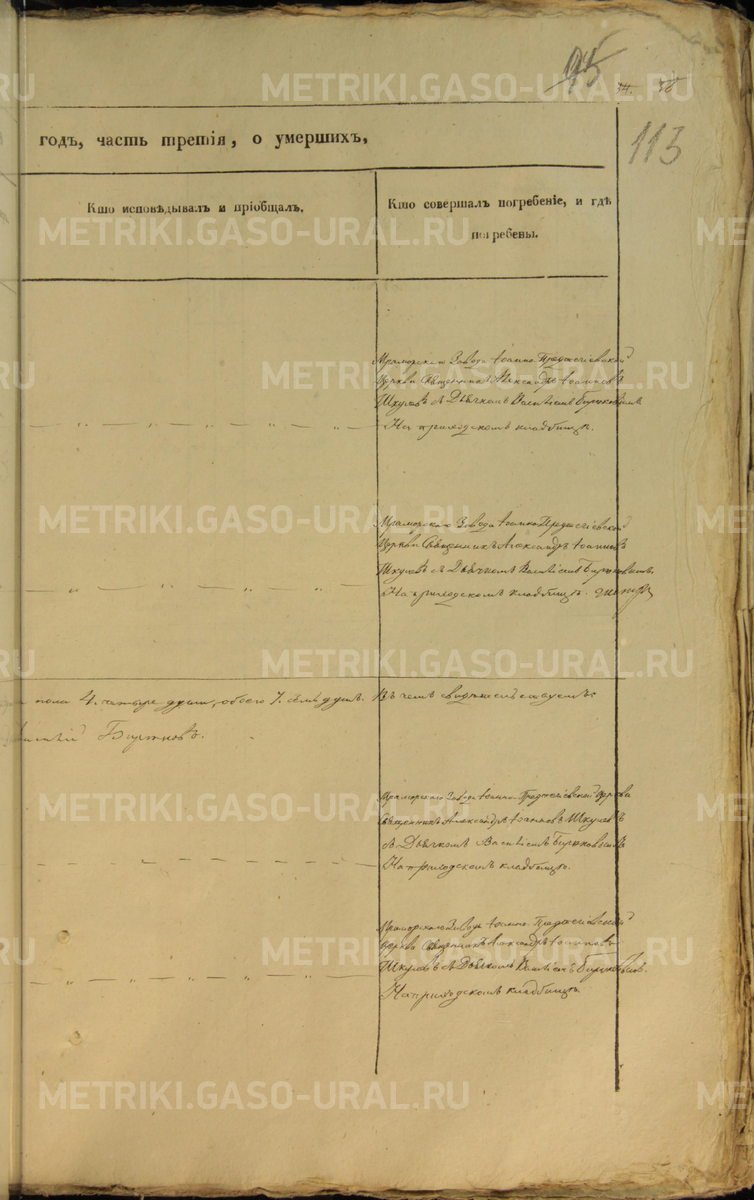 95
34. 36
113
годъ, часть третія, о умершихъ,
Кто исповѣдывалъ и пріобщалъ.
Кто совершалъ погребеніе, и гдѣ
погребены.
Мраморскаго Завода Іоанно Предтечіевской
Церкви Священникъ Александръ Іоанновъ
Шкулевъ съ Дьячкомъ Василіемъ Бирюковымъ
На приходскомъ кладбищѣ.
Мраморскаго Завода Іоанно Предтечіевской
Церкви Священникъ Александръ Іоанновъ
Шкулевъ съ Дьячкомъ Василіемъ Бирюковымъ
На приходскомъ кладбищѣ.
пола 4. четыре души, обоего 7. семь душъ. Въ чемъ свидѣтельствуемъ:
Бирюковъ.
Мраморскаго Завода Іоанно Предтечіевской Церкви
Священникъ Александръ Іоанновъ Шкулевъ
съ Дьячкомъ Василіемъ Бирюковымъ
На приходскомъ кладбищѣ.
Мраморскаго Завода Іоанно Предтечіевской
Церкви Священникъ Александръ Іоанновъ
Шкулевъ съ Дьячкомъ Василіемъ Бирюковымъ.
На приходскомъ кладбищѣ.
METRIKI.GASO-URAL.RU